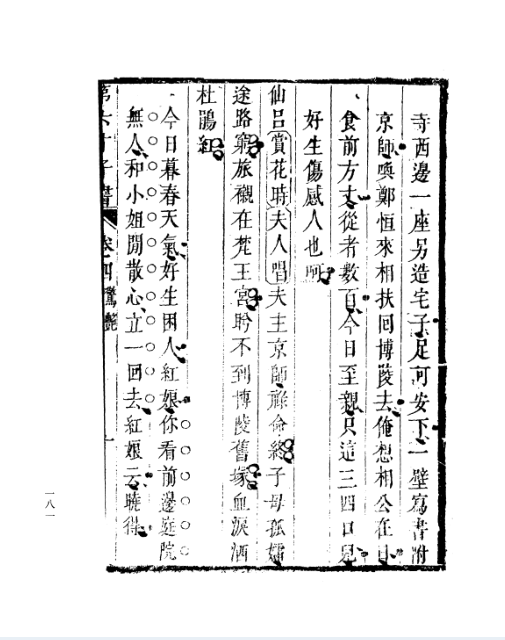 寺西邊一座另造宅子足可安下一壁寫書附
京師喚鄭恒來相扶回博陵去俺想相公在日
食前方丈從者數百今日至親只這三四口兒
好生傷感人也呵
仙呂賞花時夫人唱夫主京師祿命終子母孤孀
途路窮旅櫬在梵王宮盼不到博陵舊塚血淚洒
杜鵑紅
今日暮春天氣好生困人紅娘你看前邊庭院
無人和小姐閒散心立一回去紅娘云曉得
第六才子書 卷四 驚艷 一
一八一